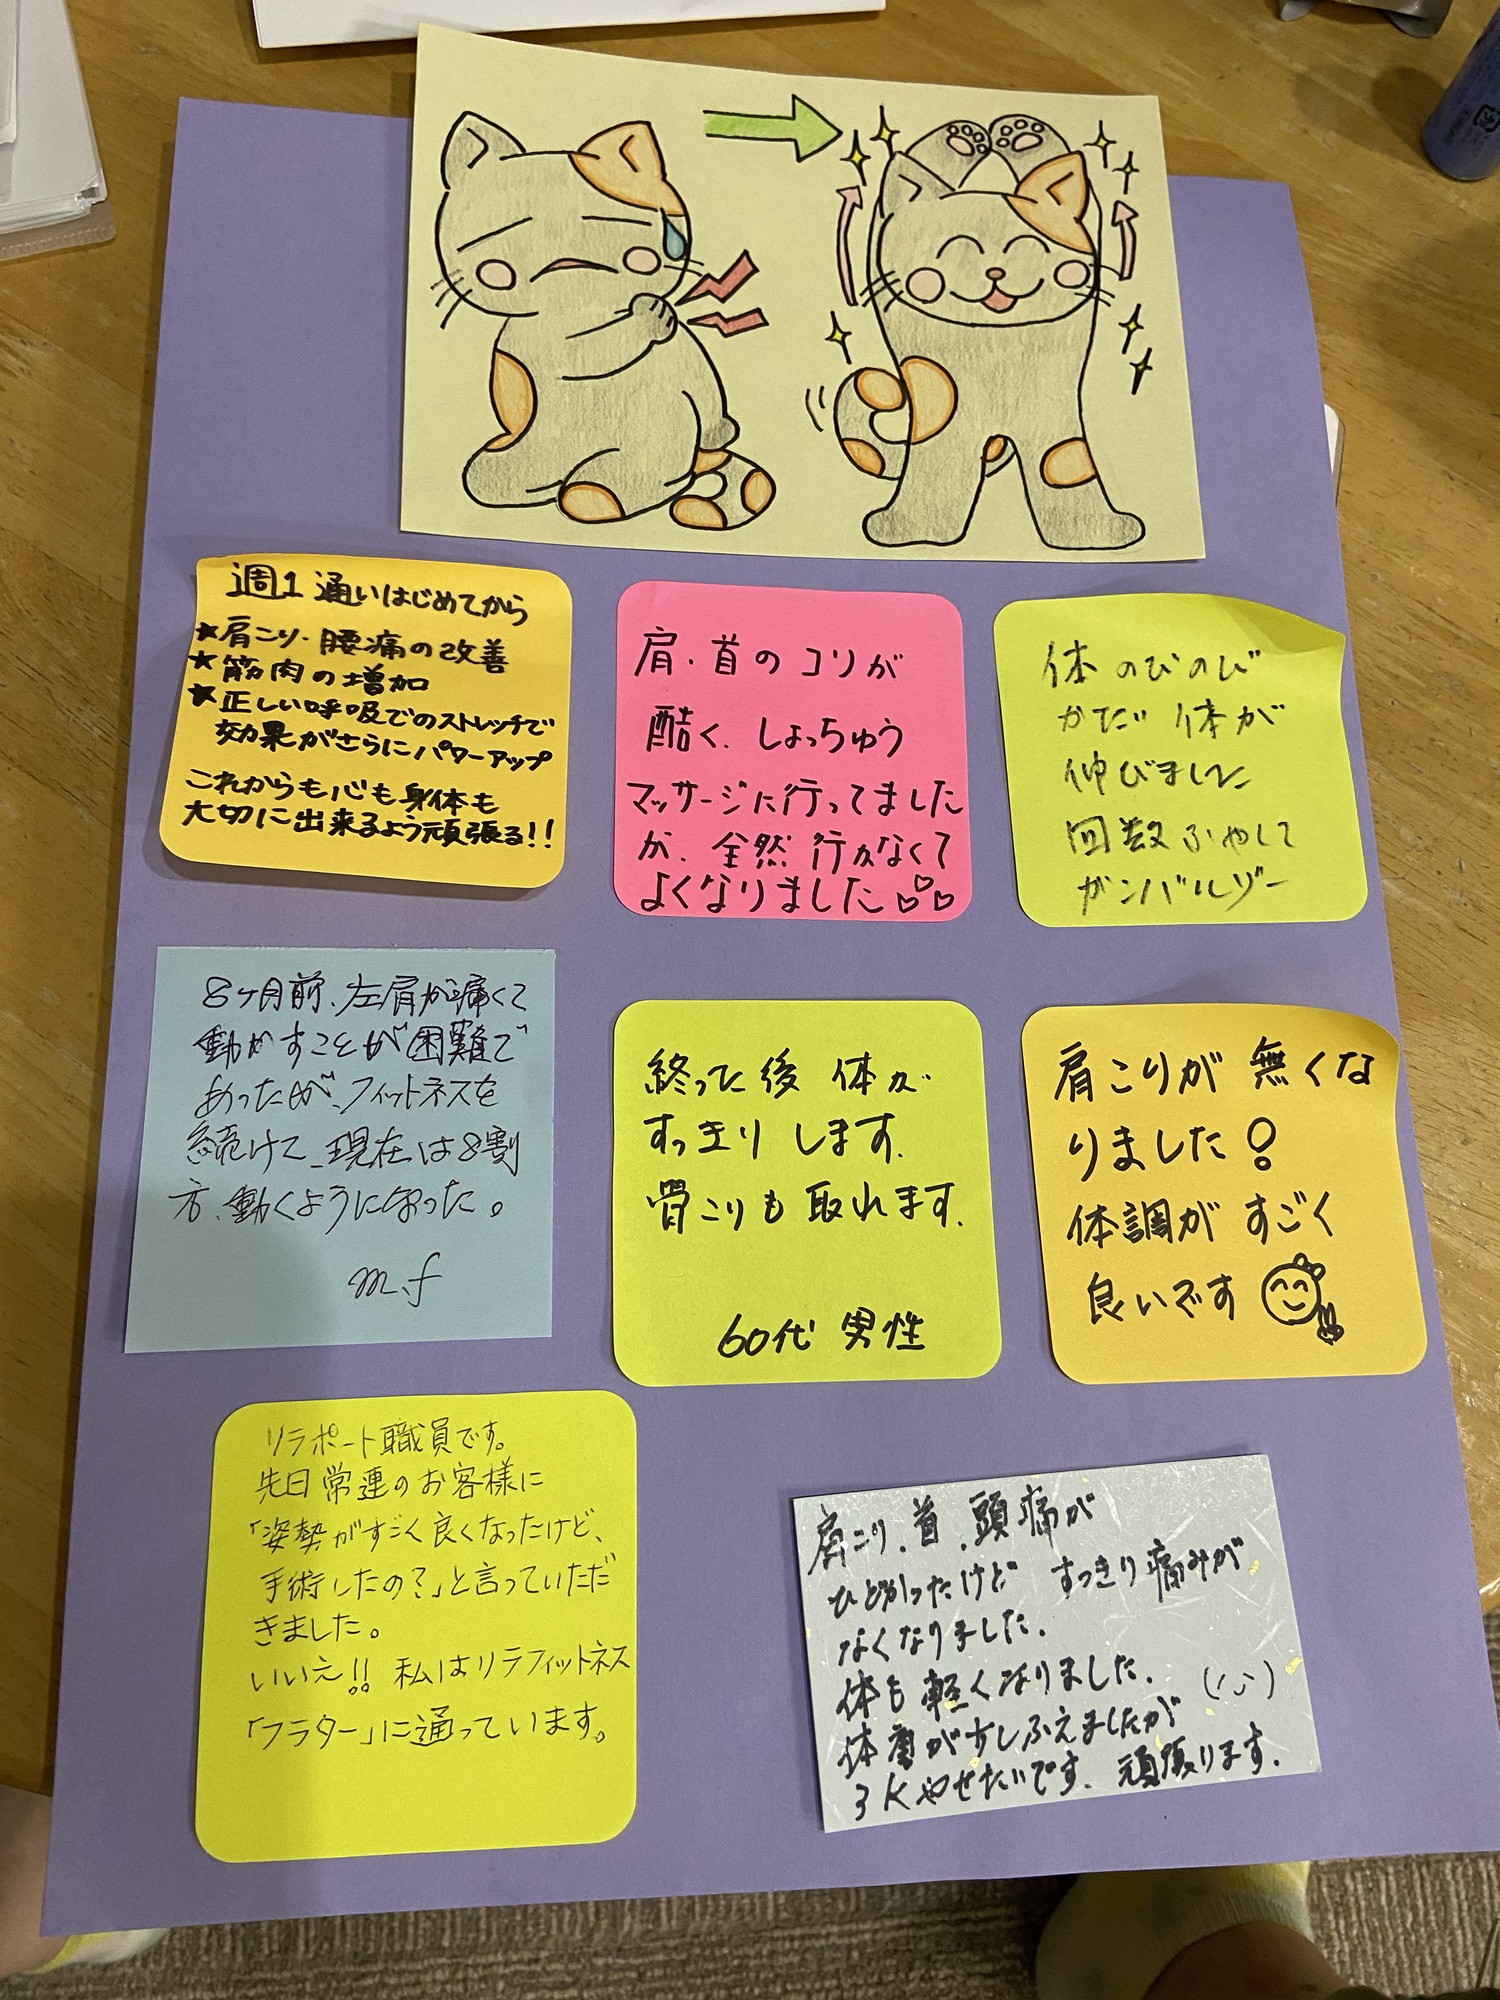 週1 通いはじめてから
★肩こり・腰痛の改善
★筋肉の増加
★正しい呼吸でのストレッチで
効果がさらにパワーアップ
これからも心も身体も
大切に出来るよう頑張る!!
肩・首のコリが
酷く、しょっちゅう
マッサージに行ってました
が、全然行かなくて
よくなりました♡♡♡
体のびのび
かだい体が
伸びました
回数ふやして
ガンバルゾー
8ヶ月前、左肩が痛くて
動かすことが困難で
あったが、フィットネスを
続けて、現在は8割
方、動くようになった。
m.f
終った後 体が
すっきりします.
肩こりも取れます.
60代 男性
肩こりが無くな
りました!
体調がすごく
良いです
リラポート職員です。
先日常連のお客様に
「姿勢がすごく良くなったけど、
手術したの?」と言っていただ
きました。
いいえ!! 私はリラフィットネス
「フラター」に通っています。
肩こり、首、頭痛が
ひどかったけど すっきり痛みが
なくなりました.
体も軽くなりました.
体重が少しふえましたが
3Kやせたいです、頑張ります.